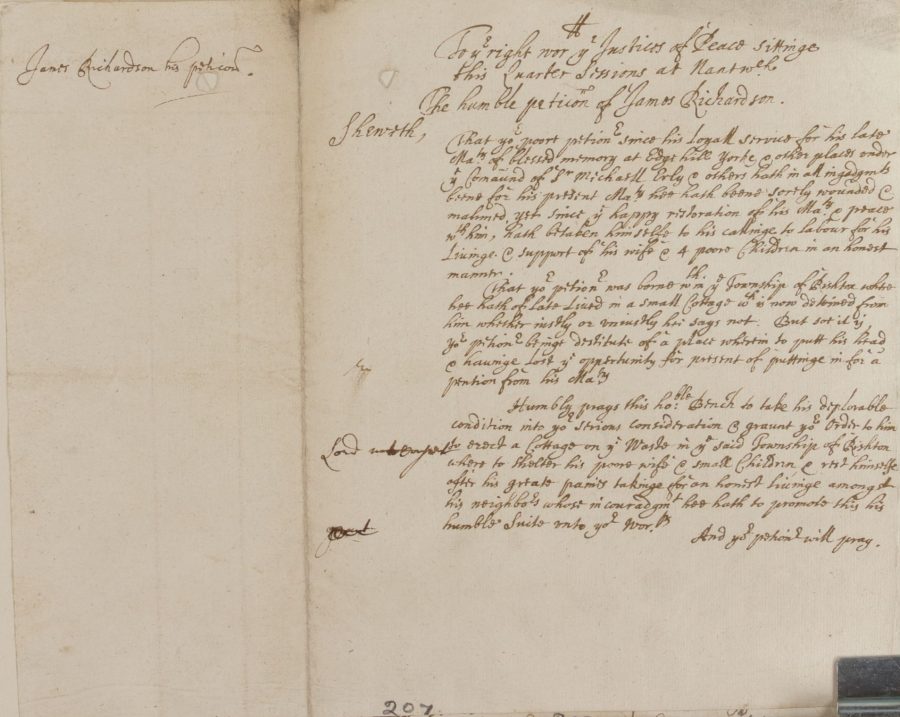 James Richardson his peticon.
To yr right worr yr Justices of Peace sittinge
this Quarter Sessions at Nantwch
The humble peticon of James Richardson.
Sheweth,
That yor poore petionr since his Loyall service for his late
Maty of blessed memory at Edgehill Yorke & other places vnder
ye Comaund of Sr Michaell Erly & others hath in all ingadgmts
beene for his present Maty hee hath beene sorely wounded &
maimed, yet since ye happy restoration of his Maty & peace
wth him, hath betaken himselfe to his callinge to labour for his
Livinge & support of his wife & 4 poore Children in an honest
manner.
That yor petionr was borne wthin ye Township of Rishton where
hee hath of late Lived in a small Cottage wch is now deteined from
him whether iustly or vniustly hee says not. But soe it is,
yor petionr beinge destitute of a place wherein to putt his head
& havinge Lost ye oppertunity for present of puttinge in for a
pention from his Maty
Humbly prays this hoble Bench to take his deplorable
condition into yor serious consideration & graunt yor Order to him
to erect a Cottage on ye Waste in ye said Township of Rishton
Lord
where to shelter his poore wife & small Children & rest himselfe
after his greate paines takinge for an honest livinge amongst
his neighbors whose incouradgmt hee hath to promote this his
humble Suite vnto yor Worpps
And yor petionr will pray.
207